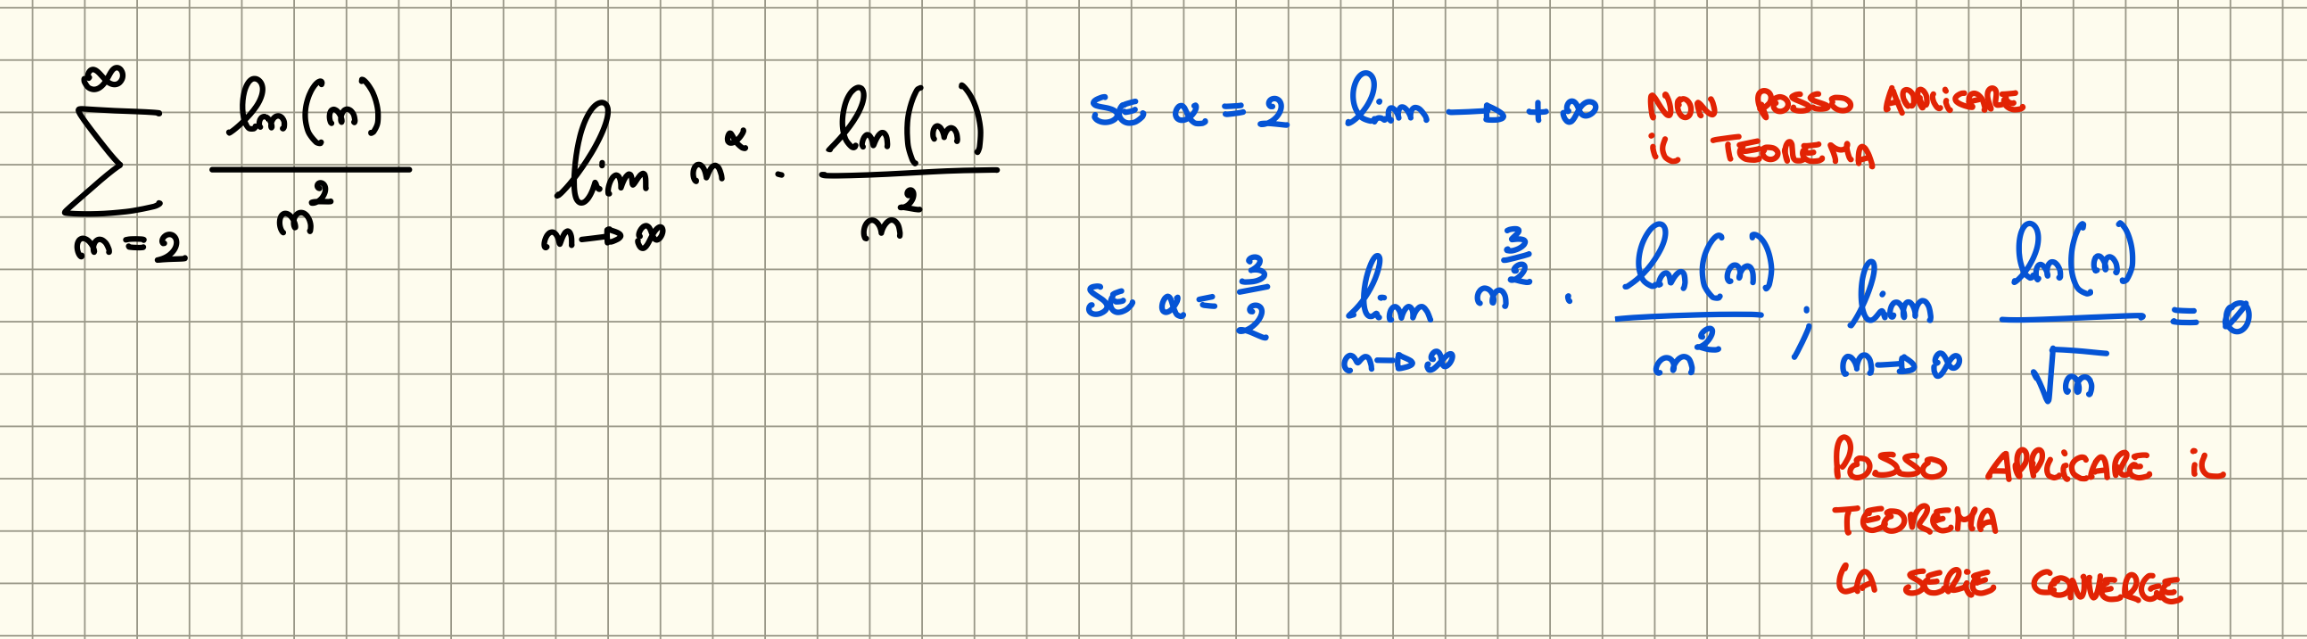 ∞
∑ ln(n) / n²
n=2
lim n^α · ln(n) / n²
n→∞
SE α = 2 lim → +∞
NON POSSO APPLICARE
IL TEOREMA
SE α = 3/2 lim n^(3/2) · ln(n) / n² ; lim ln(n) / √n = 0
n→∞ n→∞
POSSO APPLICARE IL
TEOREMA
LA SERIE CONVERGE